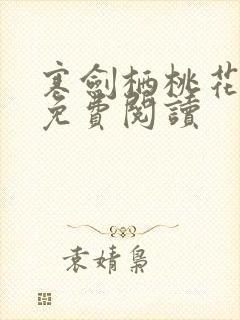 寒劍栖桃花
免費閱讀
袁婧梟